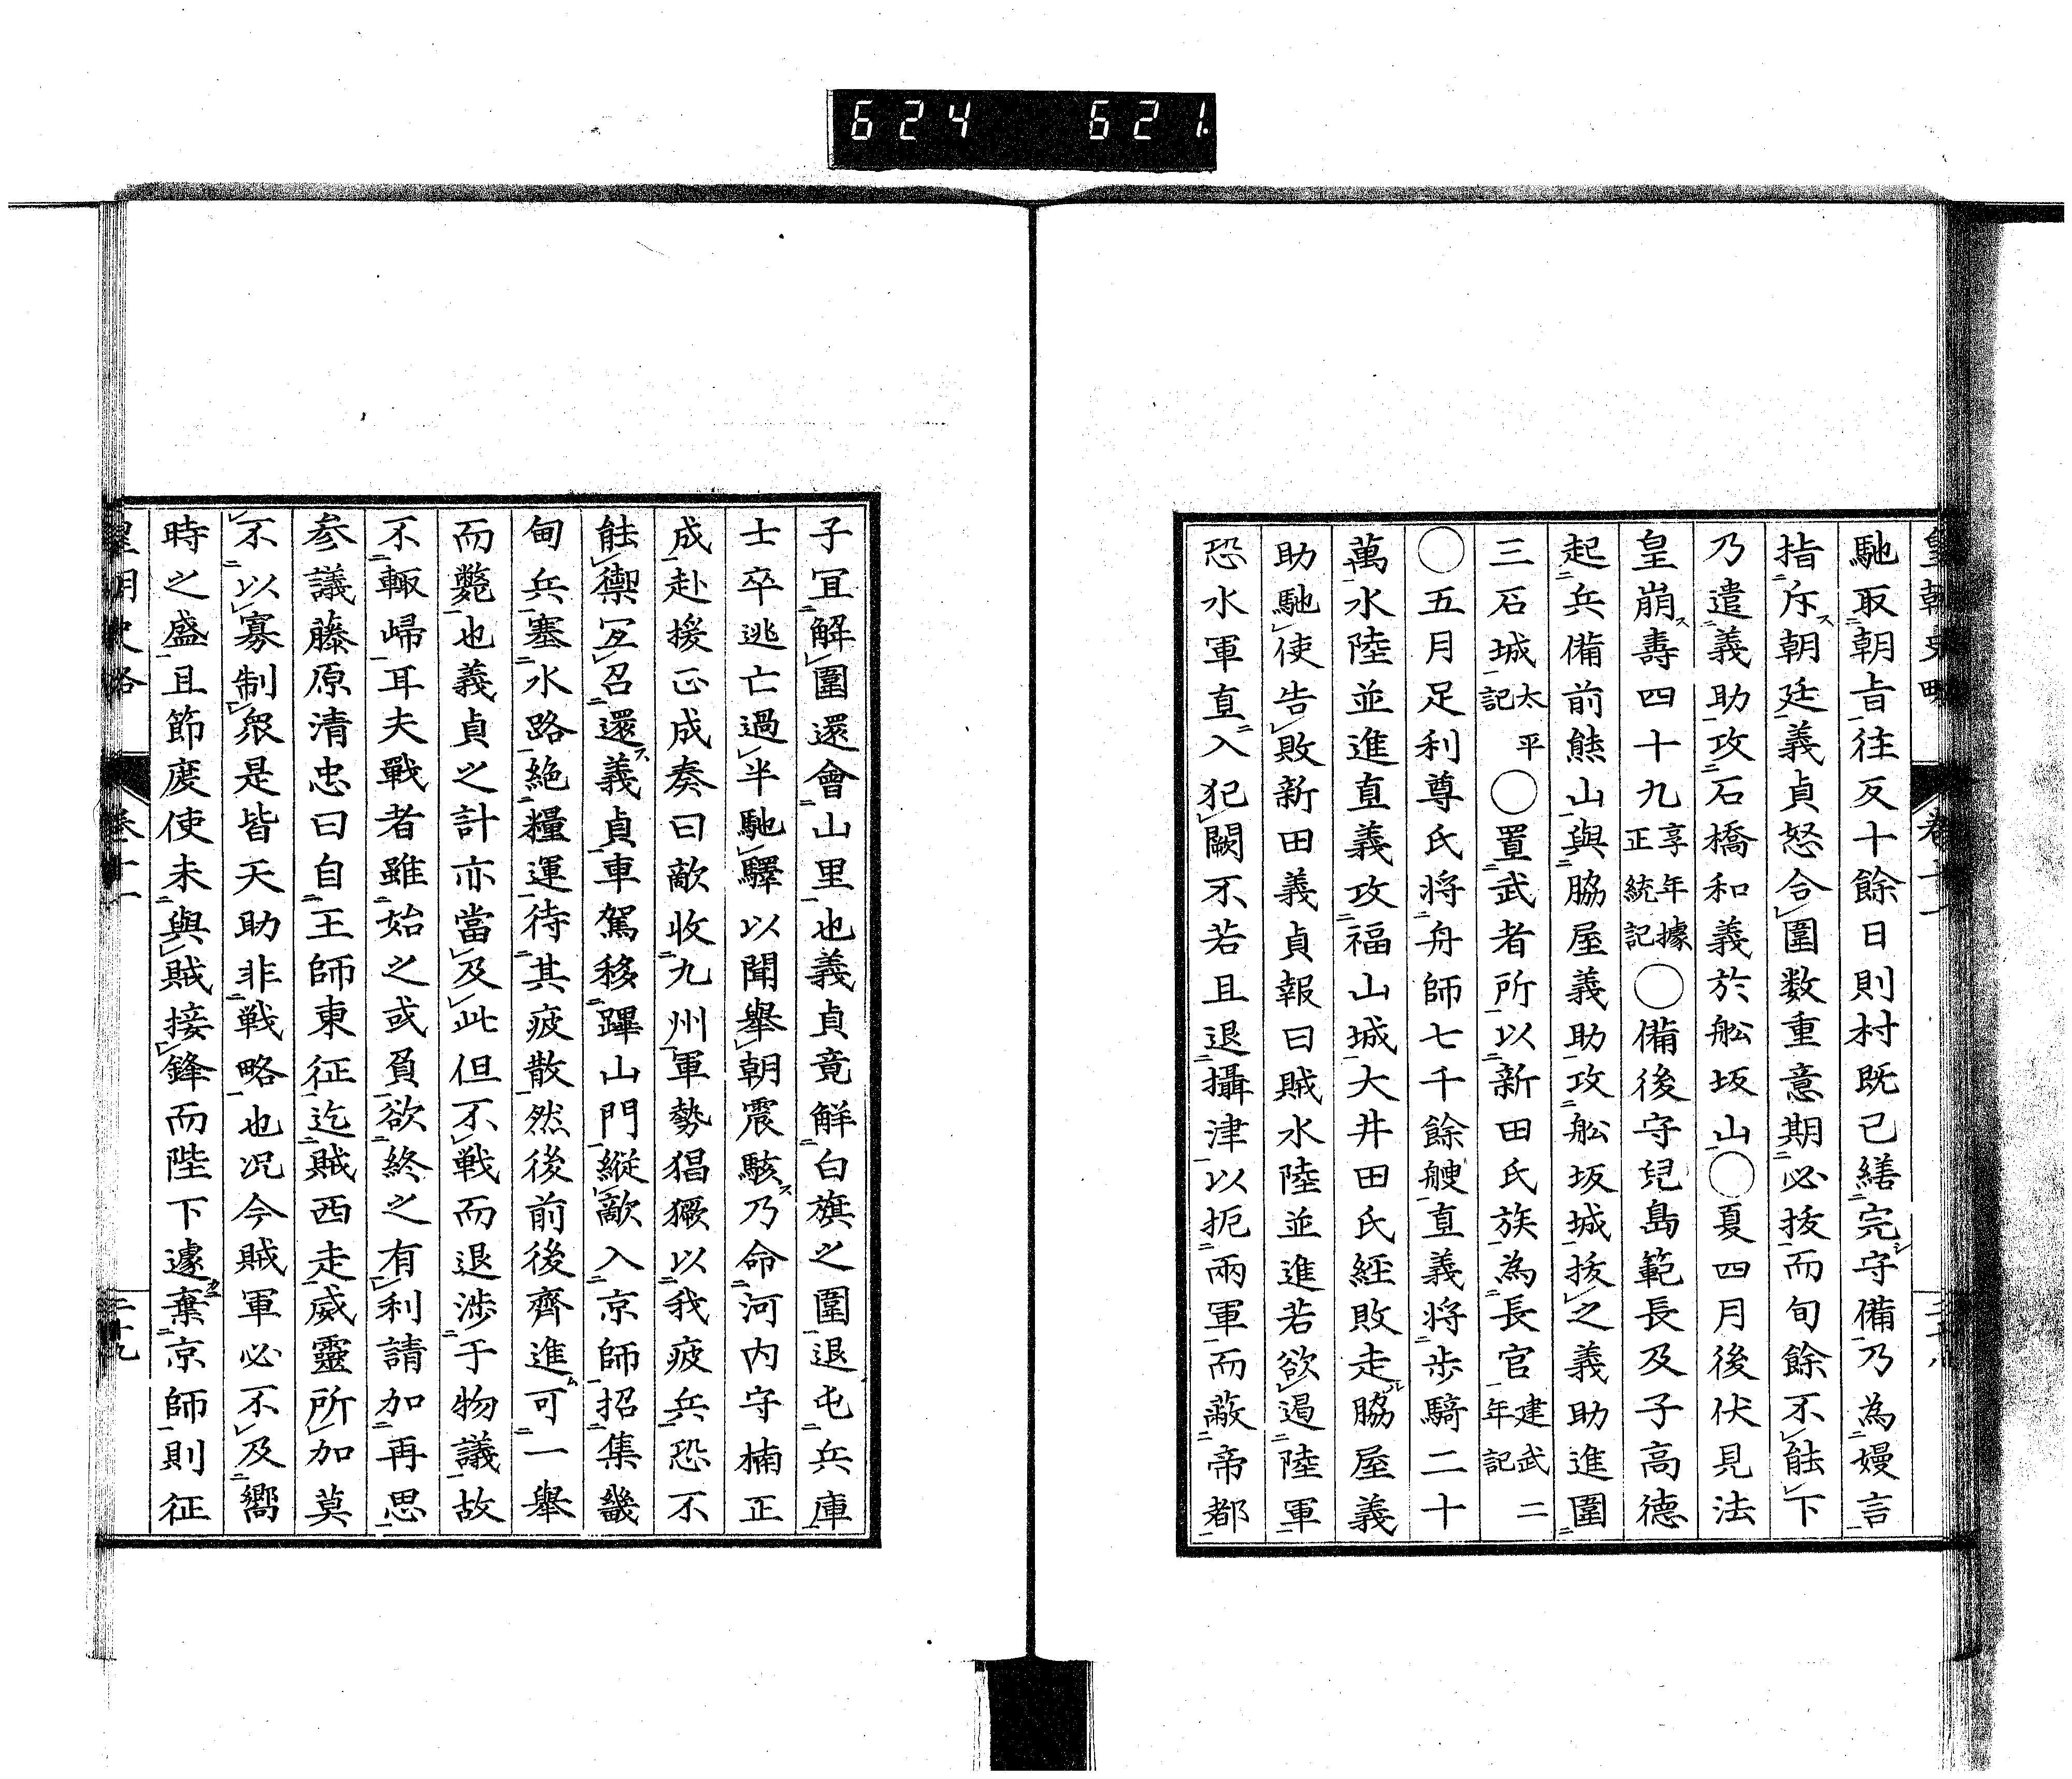 624 621.
皇朝史略 卷十一
馳取朝旨往反十餘日則村既已繕完守備乃為嫚言
指斥朝廷義貞怒合圍数重意期必抜而旬餘不能下
乃遣義助攻石橋和義於舩坂山○夏四月後伏見法
皇崩壽四十九享年據正統記○備後守兒島範長及子高德
起兵備前熊山與脇屋義助攻舩坂城抜之義助進圍
三石城太平記○置武者所以新田氏族為長官建武二年記
○五月足利尊氏将舟師七千餘艘直義将步騎二十
萬水陸並進直義攻福山城大井田氏經敗走脇屋義
助馳使告敗新田義貞報曰賊水陸並進若欲遏陸軍
恐水軍直入犯闕不若且退攝津以扼兩軍而蔽帝都
子冝解圍還會山里也義貞竟解白旗之圍退屯兵庫
士卒逃亡過半馳驛以聞舉朝震駭乃命河内守楠正
成赴援正成奏曰敵收九州軍勢猖獗以我疲兵恐不
能禦冝召還義貞車駕移蹕山門縦敵入京師招集畿
甸兵塞水路絶糧運待其疲散然後前後齊進可一舉
而斃也義貞之計亦當及此但不戦而退渉于物議故
不輙歸耳夫戰者雖始之或負欲終之有利請加再思
参議藤原清忠曰自王師東征迄賊西走威靈所加莫
不以寡制衆是皆天助非戦略也况今賊軍必不及嚮
時之盛且節度使未與賊接鋒而陛下遽棄京師則征
皇朝史略 卷十一 二十九